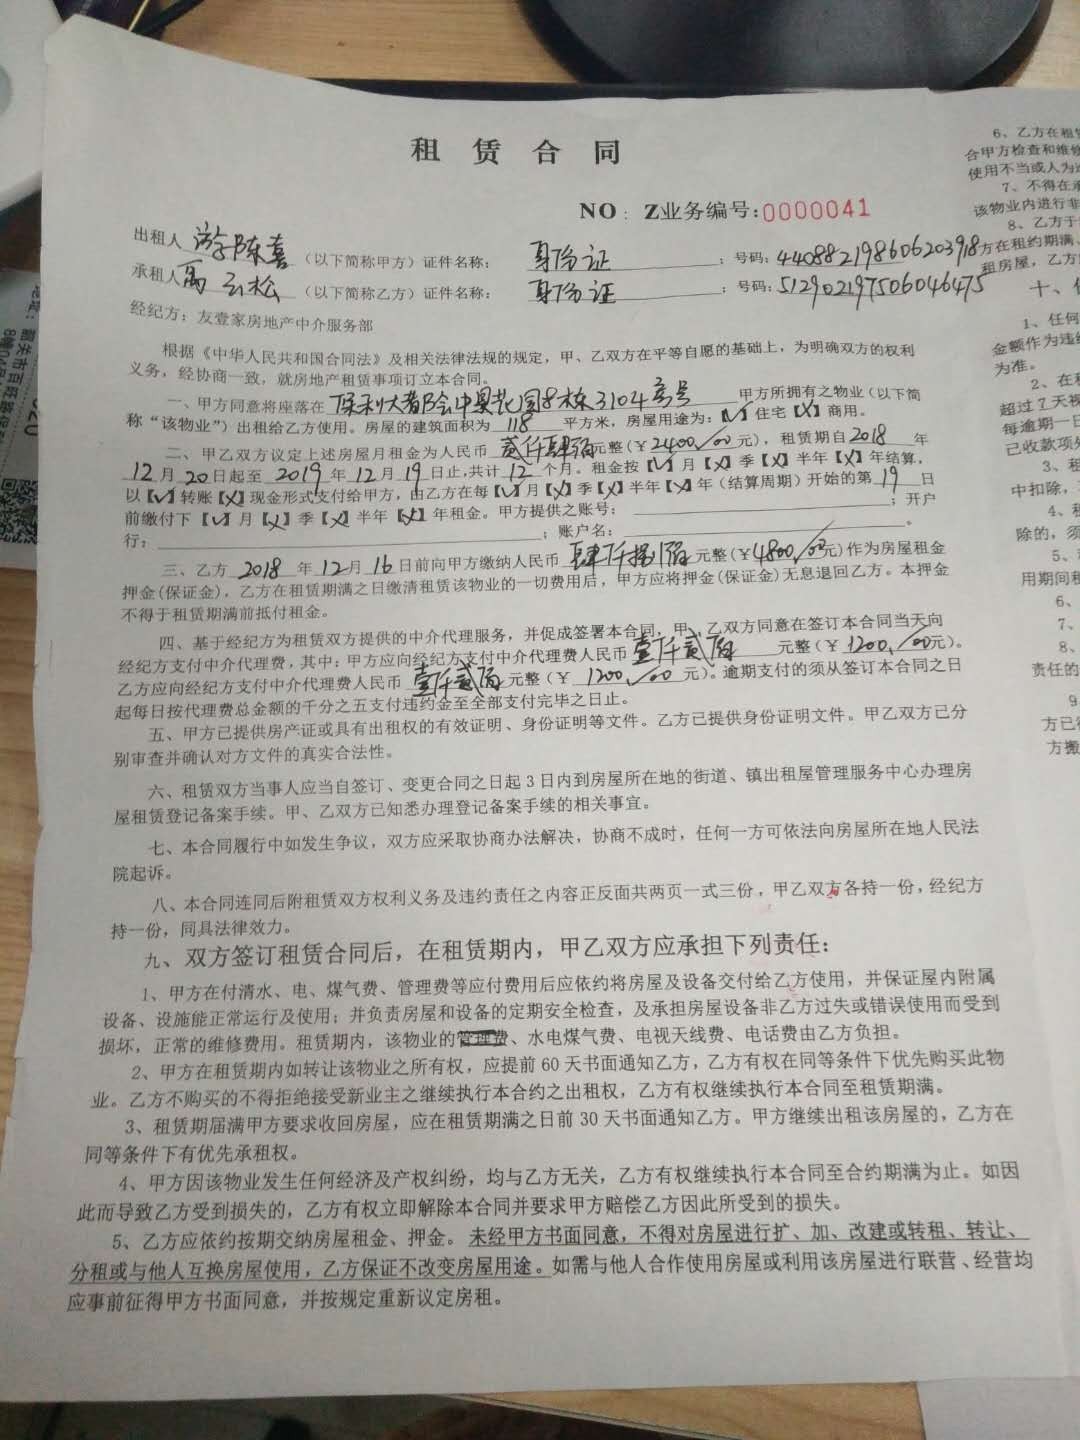 租 赁 合 同
NO： Z业务编号:0000041
出租人 游陈喜 （以下简称甲方）证件名称： 身份证 ；号码：440882198606203918
承租人 禹云松 （以下简称乙方）证件名称： 身份证 ；号码：512902197506046475
经纪方：友壹家房地产中介服务部
根据《中华人民共和国合同法》及相关法律法规的规定，甲、乙双方在平等自愿的基础上，为明确双方的权利
义务，经协商一致，就房地产租赁事项订立本合同。
一、甲方同意将座落在 保利大都会中奥花园8栋3104房号 甲方所拥有之物业（以下简
称“该物业”）出租给乙方使用。房屋的建筑面积为 118 平方米，房屋用途为：【√】住宅【X】商用。
二、甲乙双方议定上述房屋月租金为人民币 贰仟肆佰元整（￥2400/00元），租赁期自 2018 年
12月 20日起至 2019年 12月 19日止,共计 12 个月。租金按【√】月【X】季【X】半年【X】年结算，
以【√】转账【X】现金形式支付给甲方，由乙方在每【√】月【X】季【X】半年【X】年（结算周期）开始的第 19 日
前缴付下【√】月【X】季【X】半年【X】年租金。甲方提供之账号： ；开户
行： ；账户名： 。
三、乙方 2018 年 12月 16日前向甲方缴纳人民币 肆仟捌佰 元整(￥4800/00元)作为房屋租金
押金(保证金)，乙方在租赁期满之日缴清租赁该物业的一切费用后，甲方应将押金(保证金)无息退回乙方。本押金
不得于租赁期满前抵付租金。
四、基于经纪方为租赁双方提供的中介代理服务，并促成签署本合同，甲、乙双方同意在签订本合同当天向
经纪方支付中介代理费，其中：甲方应向经纪方支付中介代理费人民币 壹仟贰佰 元整（￥ 1200./00元）。
乙方应向经纪方支付中介代理费人民币 壹仟贰佰 元整（￥ 1200./00 元）。逾期支付的须从签订本合同之日
起每日按代理费总金额的千分之五支付违约金至全部支付完毕之日止。
五、甲方已提供房产证或具有出租权的有效证明、身份证明等文件。乙方已提供身份证明文件。甲乙双方已分
别审查并确认对方文件的真实合法性。
六、租赁双方当事人应当自签订、变更合同之日起 3 日内到房屋所在地的街道、镇出租屋管理服务中心办理房
屋租赁登记备案手续。甲、乙双方已知悉办理登记备案手续的相关事宜。
七、本合同履行中如发生争议，双方应采取协商办法解决，协商不成时，任何一方可依法向房屋所在地人民法
院起诉。
八、本合同连同后附租赁双方权利义务及违约责任之内容正反面共两页一式三份，甲乙双方各持一份，经纪方
持一份，同具法律效力。
九、双方签订租赁合同后，在租赁期内，甲乙双方应承担下列责任：
1、甲方在付清水、电、煤气费、管理费等应付费用后应依约将房屋及设备交付给乙方使用，并保证屋内附属
设备、设施能正常运行及使用；并负责房屋和设备的定期安全检查，及承担房屋设备非乙方过失或错误使用而受到
损坏，正常的维修费用。租赁期内，该物业的管理费、水电煤气费、电视天线费、电话费由乙方负担。
2、甲方在租赁期内如转让该物业之所有权，应提前 60 天书面通知乙方，乙方有权在同等条件下优先购买此物
业。乙方不购买的不得拒绝接受新业主之继续执行本合约之出租权，乙方有权继续执行本合同至租赁期满。
3、租赁期届满甲方要求收回房屋，应在租赁期满之日前 30 天书面通知乙方。甲方继续出租该房屋的，乙方在
同等条件下有优先承租权。
4、甲方因该物业发生任何经济及产权纠纷，均与乙方无关，乙方有权继续执行本合同至合约期满为止。如因
此而导致乙方受到损失的，乙方有权立即解除本合同并要求甲方赔偿乙方因此所受到的损失。
5、乙方应依约按期交纳房屋租金、押金。未经甲方书面同意，不得对房屋进行扩、加、改建或转租、转让、
分租或与他人互换房屋使用，乙方保证不改变房屋用途。如需与他人合作使用房屋或利用该房屋进行联营、经营均
应事前征得甲方书面同意，并按规定重新议定房租。
6、乙方在租
合甲方检查和维修
使用不当或人为
7、不得在
该物业内进行非
8、乙方于
方在租约期满
租房屋，乙方
十、
1、任何
金额作为违约
为准。
2、在租
超过 7 天视
每逾期一日
已收款项
3、租
中扣除，
4、租
除的，须
5、
用期间租
6、
7、
8、
责任的
9
方已
方搬